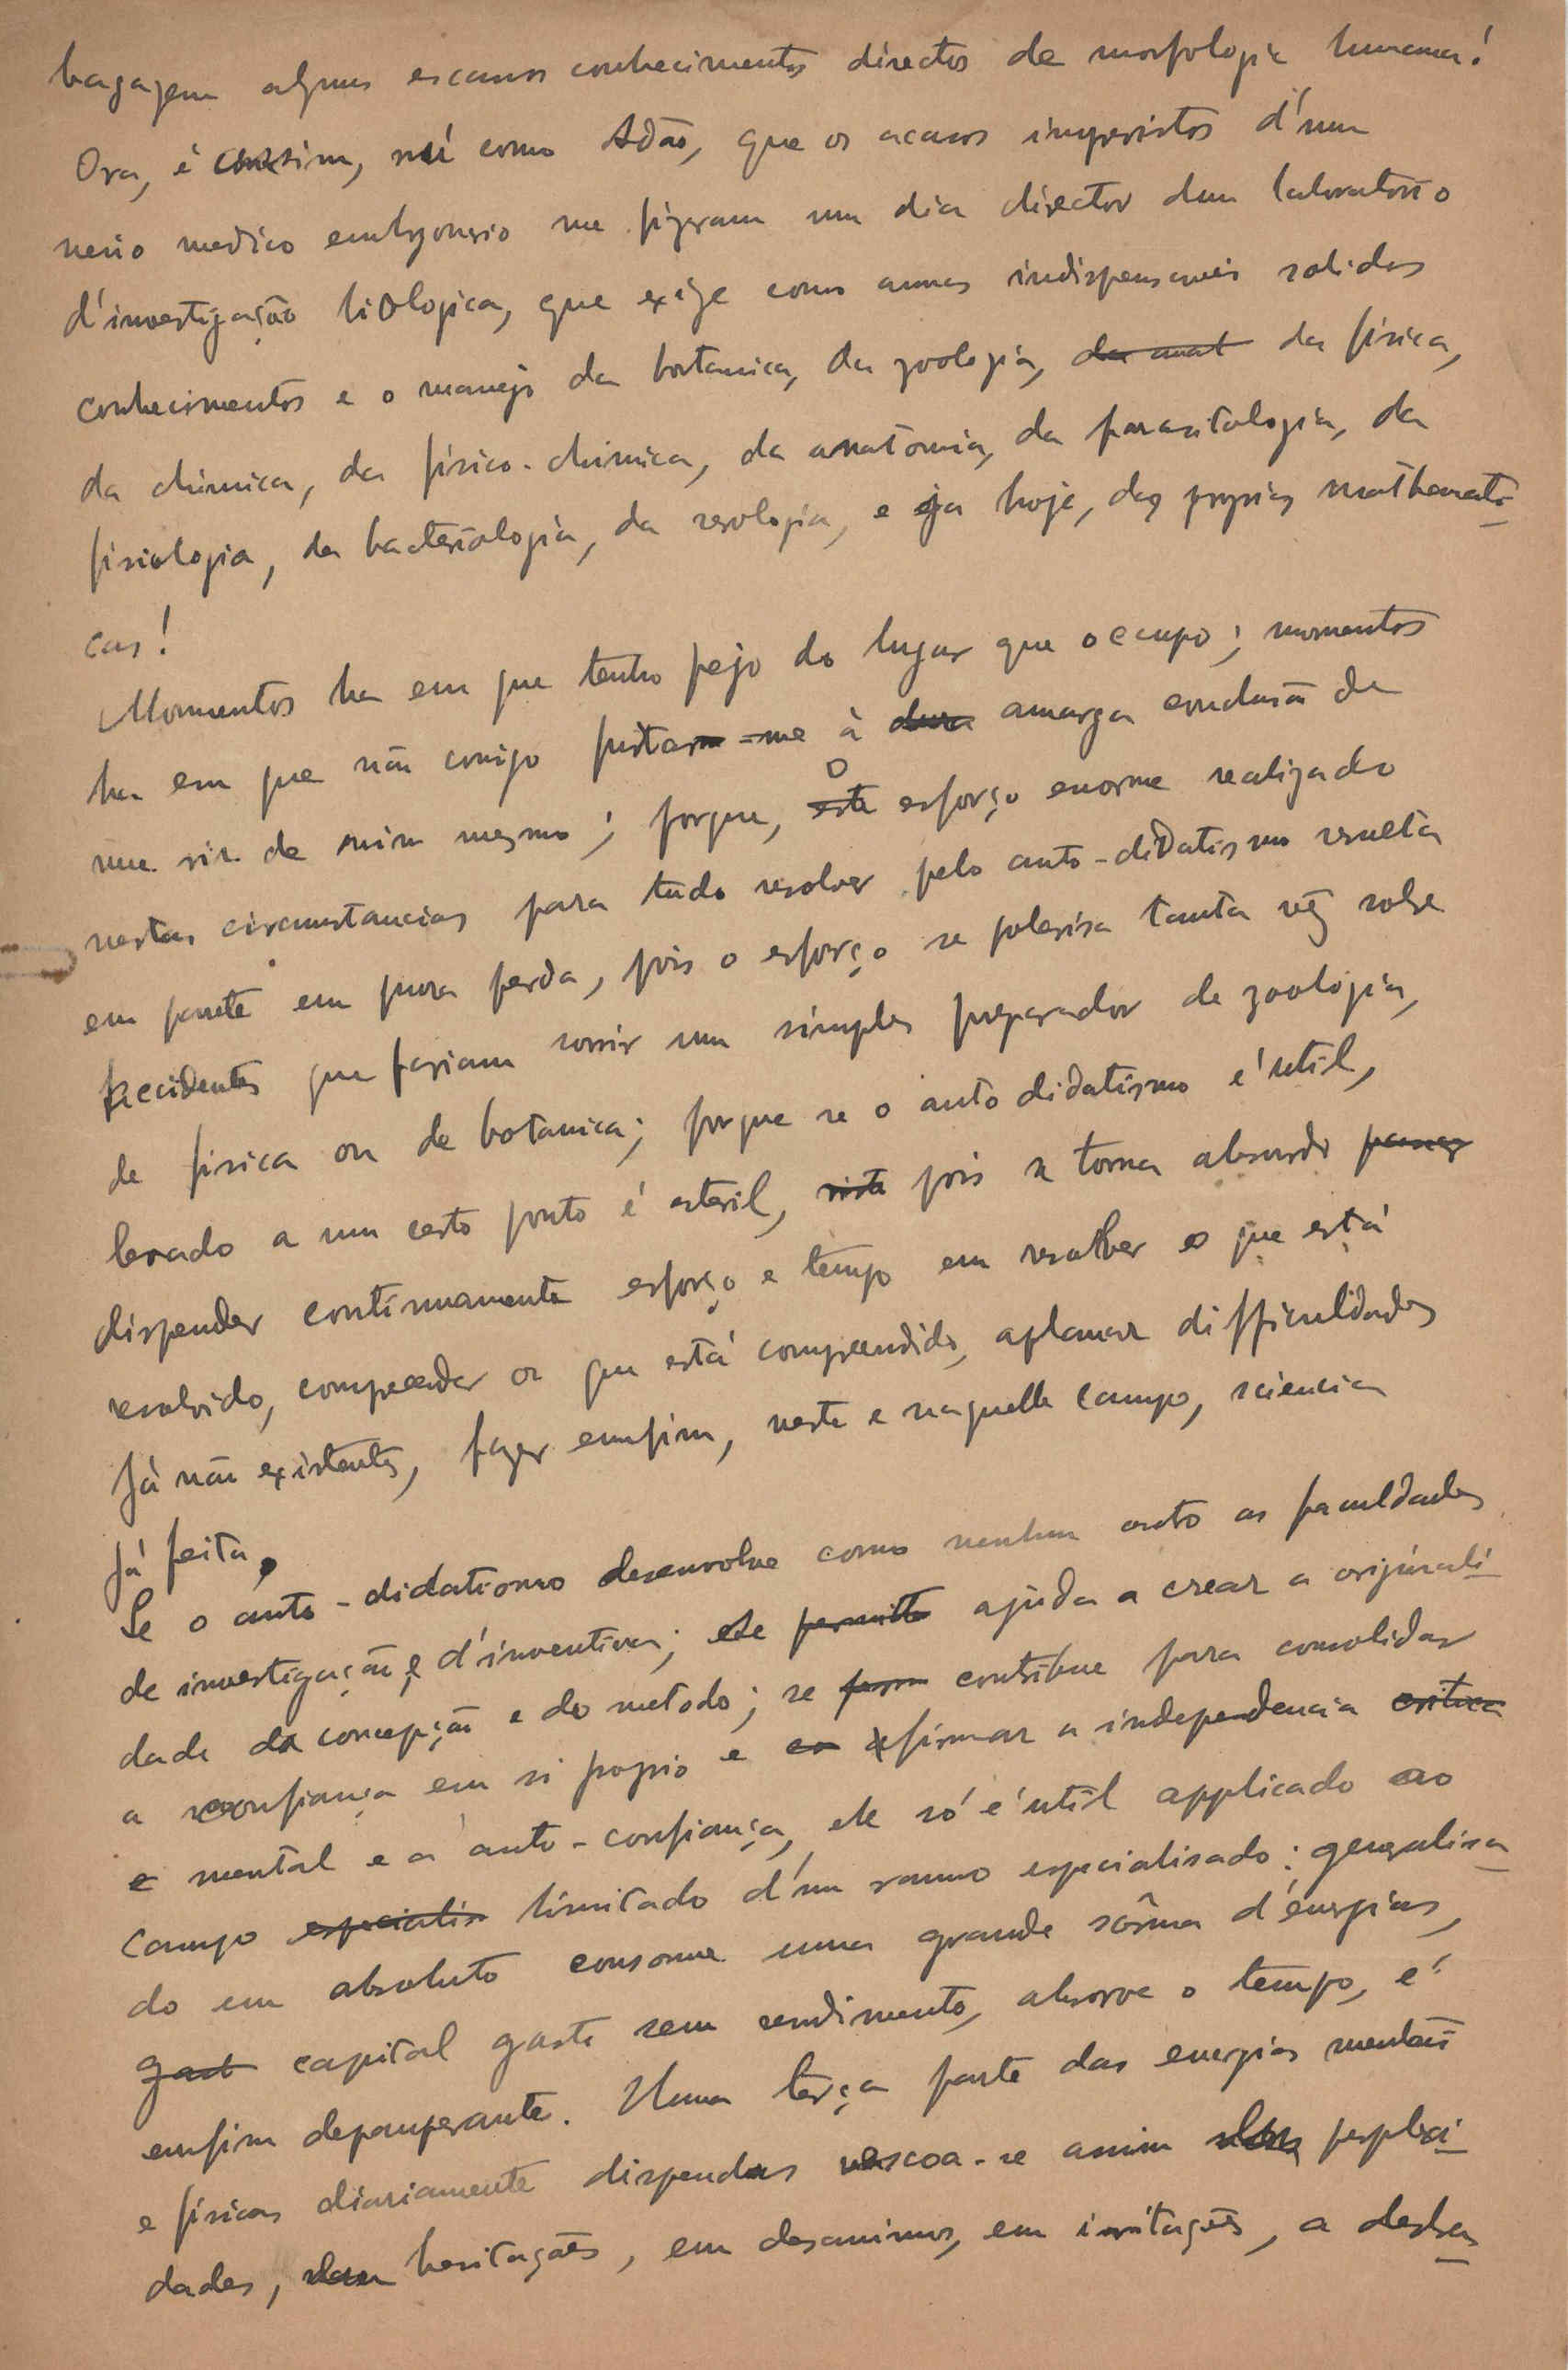 bagagem alguns escassos conhecimentos directos de morfologia humana!
Ora, é assim, nú como Adão, que os acasos imprevistos d'um
meio medico embryonario me fizeram um dia director dum laboratorio
d'investigação biologica, que exige como armas indispensaveis solidos
conhecimentos e o manejo da botanica, da zoologia, da anat da fisica,
da chimica, da fisico-chimica, da anatomia, da parasitologia, da
fisiologia, da bacteriologia, da serologia, e já hoje, das proprias mathemati-
cas!
Momentos ha em que tenho pejo do lugar que occupo; momentos
ha em que não consigo furtar-me à dura amarga conclusão de
me rir de mim mesmo; porque, este o esforço enorme realizado
nestas circumstancias para tudo resolver pelo auto-didatismo resulta
em parte em pura perda, pois o esforço se polarisa tanta vêz sobre
accidentes que fariam sorrir um simples preparador de zoologia,
de fisica ou de botanica; porque se o auto didatismo é util,
levado a um certo ponto é esteril, visto pois se torna absurdo
dispender continuamente esforço e tempo em resolver o que está
resolvido, compreender o que está comprendido, aplanar difficuldades
já não existentes, fazer emfim, neste e naquelle campo, sciencia
já feita.
Se o auto-didatismo desenvolve como nenhum outro as faculdades
de investigação e d'inventiva; se permitte ajuda a crear a originali-
dade da concepção e do metodo; se contribue para consolidar
a confiança em si proprio e afirmar a independencia critica
e mental e a auto-confiança, ele só é util applicado ao
campo especialis limitado d'um ramo especialisado: generalisa-
do em absoluto consome uma grande sôma d'energias,
gast capital gasto sem rendimento, absorve o tempo, é
emfim depauperante. Uma terça parte das energias mentais
e fisicas diariamente dispendidas escoa-se assim perplexi-
dades, hesitações, em desanimos, em irritações, a desba-